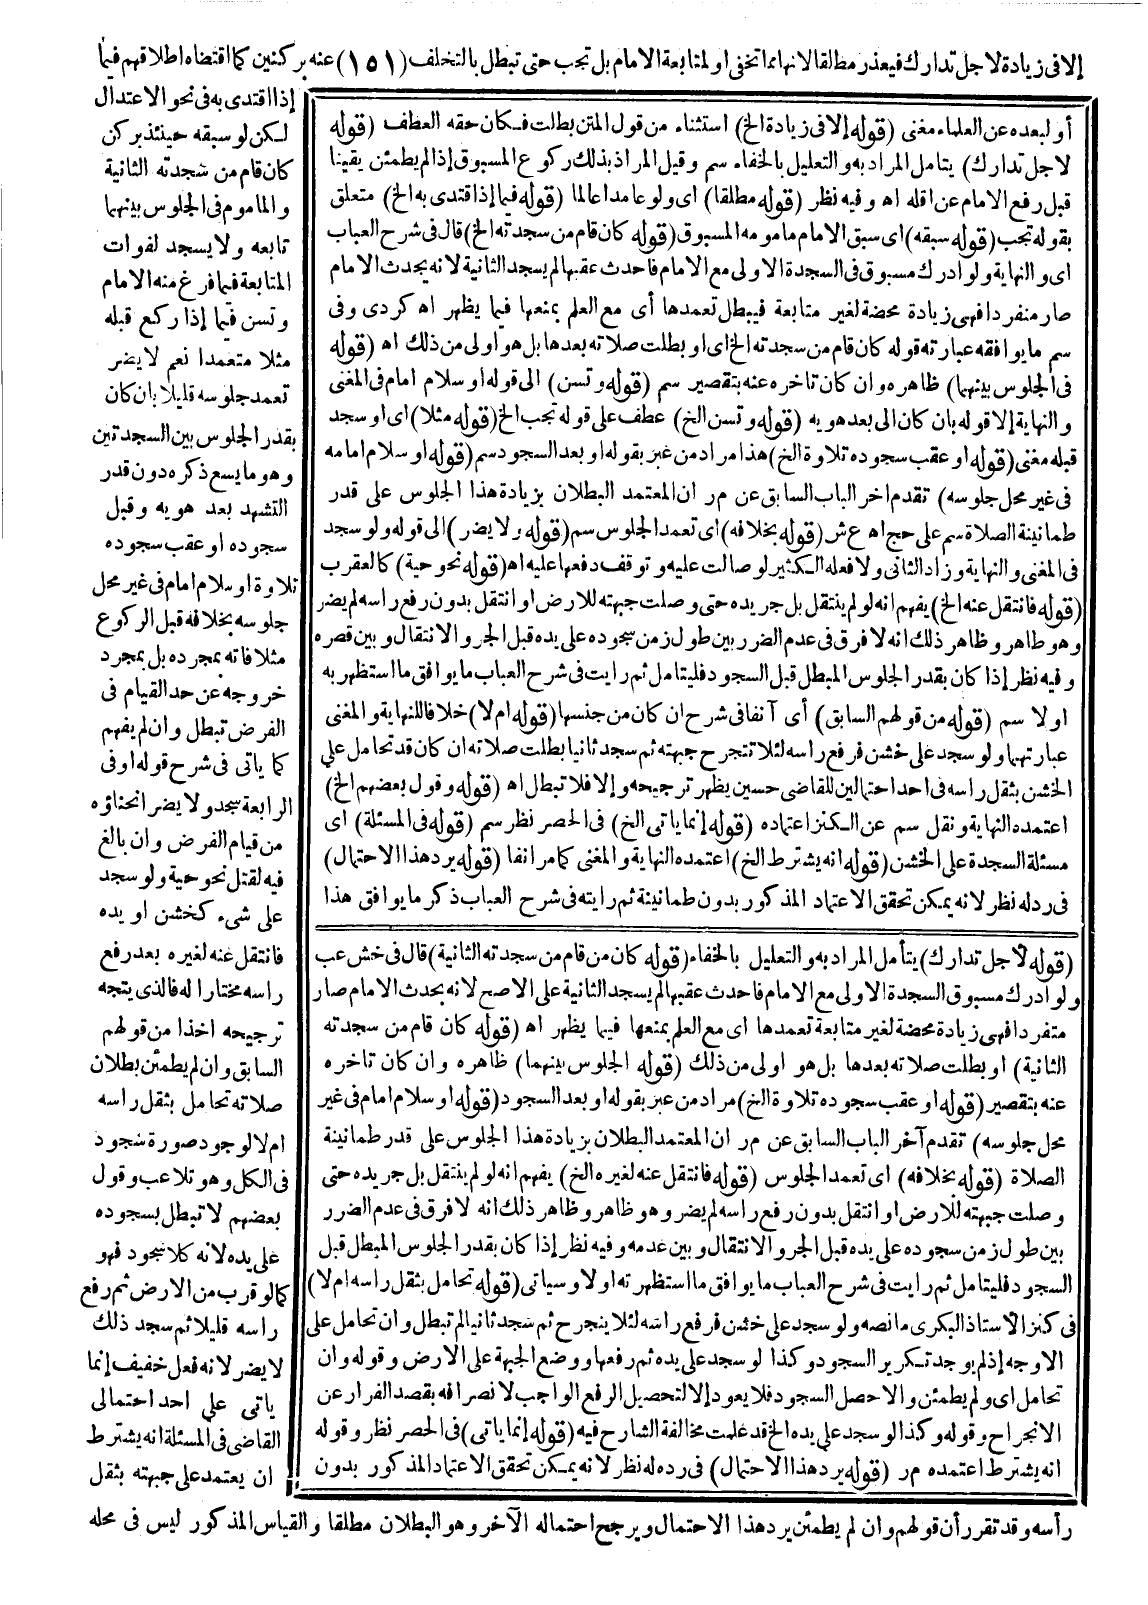 إلا فى زيادة لاجل تدارك فيعذر مطلقا لانها مما تخفى او لمتابعة الامام بل تجب حتى تبطل بالتخلف (١٥١) عنه بركنين كما اقتضاه اطلاقهم فيما
إذا اقتدى به فى نحو الاعتدال
لكن لو سبقه حينئذ بركن
كان قام من سجدته الثانية
والماموم فى الجلوس بينهما
تابعه ولا يسجد لفوات
المتابعة فيما فرغ منه الامام
وتسن فيما إذا ركع قبله
مثلا متعمدا نعم لا يضر
تعمد جلوسه قليلا بان كان
بقدر الجلوس بين السجدتين
وهو ما يسع ذكره دون قدر
التشهد بعد هويه وقبل
سجوده او عقب سجوده
تلاوة او سلام امام فى غير محل
جلوسه بخلافه قبل الركوع
مثلا فانه بمجرده بل بمجرد
خروجه عن حد القيام فى
الفرض تبطل وان لم يفهم
كما ياتى فى شرح قوله او فى
الرابعة سجد ولا يضر انحناؤه
من قيام الفرض وان بالغ
فيه لقتل نحو حية ولو سجد
على شىء كخشن او يده
فانتقل عنه لغيره بعد رفع
راسه مختارا له فالذى يتجه
ترجيحه اخذا من قولهم
السابق وان لم يطمئن بطلان
صلاته تحامل بثقل راسه
ام لا لوجود صورة سجود
فى الكل وهو تلاعب وقول
بعضهم لا تبطل بسجوده
على يده لانه كلا سجود فهو
كما لو قرب من الارض ثم رفع
راسه قليلا ثم سجد ذلك
لا يضر لانه فعل خفيف إنما
ياتى على احد احتمالى
القاضى فى المسئلة انه يشترط
ان يعتمد على جبهته بثقل
رأسه وقد تقرر أن قولهم وان لم يطمئن يرد هذا الاحتمال ويرجح احتماله الآخر وهو البطلان مطلقا والقياس المذكور ليس فى محله
أو لبعده عن العلماء مغنى (قوله إلا فى زيادة الخ) استثناء من قول المتن بطلت فكان حقه العطف (قوله
لاجل تدارك) يتامل المراد به والتعليل بالخفاء سم وقيل المراد بذلك ركوع المسبوق إذا لم يطمئن يقينا
قبل رفع الامام عن اقله اه وفيه نظر (قوله مطلقا) اى ولو عامدا عالما (قوله فيما إذا اقتدى به الخ) متعلق
بقوله تجب (قوله سبقه) اى سبق الامام مامومه المسبوق (قوله كان قام من سجدته الخ) قال فى شرح العباب
اى والنهاية ولو ادرك مسبوق فى السجدة الاولى مع الامام فاحدث عقبها لم يسجد الثانية لانه يحدث الامام
صار منفردا فهى زيادة محضة لغير متابعة فيبطل تعمدها أى مع العلم بمنعها فيما يظهر اه كردى وفى
سم ما يوافقه عبارته قوله كان قام من سجدته الخ اى او بطلت صلاته بعدها بل هو اولى من ذلك اه (قوله
فى الجلوس بينهما) ظاهره وان كان تاخره عنه بتقصير سم (قوله وتسن) الى قوله او سلام امام فى المغنى
والنهاية إلا قوله بان كان الى بعد هويه (قوله وتسن الخ) عطف على قوله تجب الخ (قوله مثلا) اى او سجد
قبله مغنى (قوله او عقب سجوده تلاوة الخ) هذا مراد من عبر بقوله او بعد السجود سم (قوله او سلام امامه
فى غير محل جلوسه) تقدم اخر الباب السابق عن م ر ان المعتمد البطلان بزيادة هذا الجلوس على قدر
طمانينة الصلاة سم على حج اه ع ش (قوله بخلافه) اى تعمد الجلوس سم (قوله ولا يضر) الى قوله ولو سجد
فى المغنى والنهاية وزاد الثانى ولا فعله الكثير لو صالت عليه وتوقف دفعها عليه اه (قوله نحو حية) كالعقرب
(قوله فانتقل عنه الخ) يفهم انه لو لم ينتقل بل جر يده حتى وصلت جبهته للارض او انتقل بدون رفع راسه لم يضر
وهو ظاهر وظاهر ذلك انه لا فرق فى عدم الضرر بين طول زمن سجوده على يده قبل الجر والانتقال وبين قصره
وفيه نظر إذا كان بقدر الجلوس المبطل قبل السجود فليتامل ثم رايت فى شرح العباب ما يوافق ما استظهر به
اولا سم (قوله من قولهم السابق) أى آنفا فى شرح ان كان من جنسها (قوله ام لا) خلافا للنهاية والمغنى
عبارتهما ولو سجد على خشن فرفع راسه لئلا تتجرح جبهته ثم سجد ثانيا بطلت صلاته ان كان قد تحامل على
الخشن بثقل راسه فى احد احتمالين للقاضى حسين يظهر ترجيحه وإلا فلا تبطل اه (قوله وقول بعضهم الخ)
اعتمده النهاية ونقل سم عن الكنز اعتماده (قوله إنما ياتى الخ) فى الحصر نظر سم (قوله فى المسئلة) اى
مسئلة السجدة على الخشن (قوله انه يشترط الخ) اعتمده النهاية والمغنى كما مر انفا (قوله يرد هذا الاحتمال)
فى رده له نظر لانه يمكن تحقق الاعتماد المذكور بدون طمانينة ثم رايته فى شرح العباب ذكر ما يوافق هذا
(قوله لاجل تدارك) يتأمل المراد به والتعليل بالخفاء (قوله كان من قام من سجدته الثانية) قال فى خش عب
ولو ادرك مسبوق السجدة الاولى مع الامام فاحدث عقبها لم يسجد الثانية على الاصح لانه بحدث الامام صار
منفردا فهى زيادة محضة لغير متابعة تعمدها اى مع العلم بمنعها فيما يظهر اه (قوله كان قام من سجدته
الثانية) او بطلت صلاته بعدها بل هو اولى من ذلك (قوله الجلوس بينهما) ظاهره وان كان تاخره
عنه بتقصير (قوله او عقب سجوده تلاوة الخ) مراد من عبر بقوله او بعد السجود (قوله او سلام امام فى غير
محل جلوسه) تقدم آخر الباب السابق عن م ر ان المعتمد البطلان بزيادة هذا الجلوس على قدر طمانينة
الصلاة (قوله بخلافه) اى تعمد الجلوس (قوله فانتقل عنه لغيره الخ) يفهم انه لو لم ينتقل بل جر يده حتى
وصلت جبهته للارض او انتقل بدون رفع راسه لم يضر وهو ظاهر وظاهر ذلك انه لا فرق فى عدم الضرر
بين طول زمن سجوده على يده قبل الجر والانتقال وبين عدمه وفيه نظر إذا كان بقدر الجلوس المبطل قبل
السجود فليتامل ثم رايت فى شرح العباب ما يوافق ما استظهرته اولا وسياتى (قوله تحامل بثقل راسه ام لا)
فى كنز الأستاذ البكرى ما نصه ولو سجد على خشن فرفع راسه لئلا ينجرح ثم سجد ثانيا لم تبطل وان تحامل على
الاوجه إذ لم يوجد تكرير السجود وكذا لو سجد على يده ثم رفعها ووضع الجبهة على الارض وقوله وان
تحامل اى ولم يطمئن والا حصل السجود فلا يعود إلا لتحصيل الرفع الواجب لانصرافه بقصد الفرار عن
الانجراح وقوله وكذا لو سجد على يده الخ قد علمت مخالفة الشارح فيه (قوله إنما ياتى) فى الحصر نظر وقوله
انه يشترط اعتمده م ر (قوله يرد هذا الاحتمال) فى رده له نظر لانه يمكن تحقق الاعتماد المذكور بدون